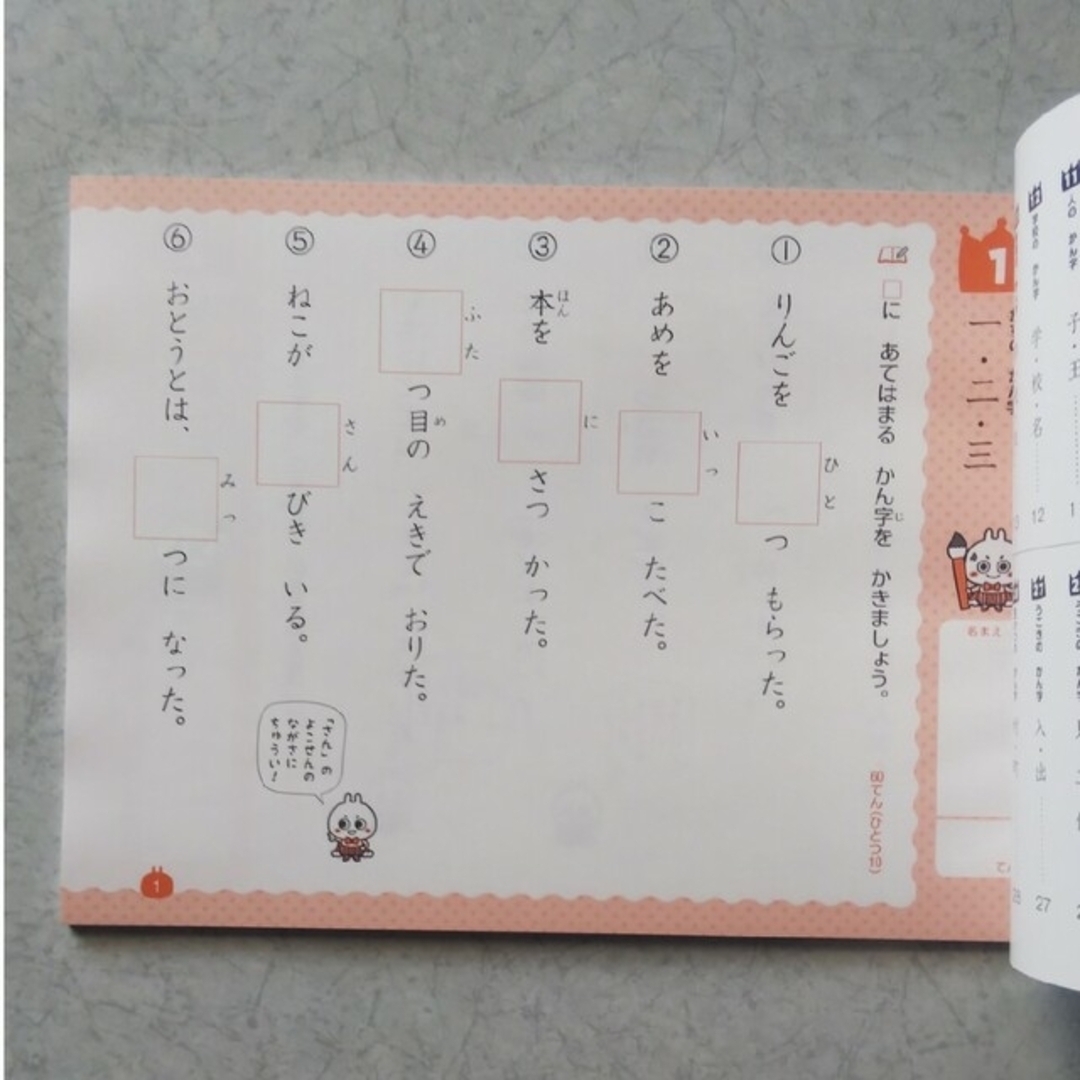 1
一・二・三
名まえ
□に あてはまる かん字を かきましょう。
じ
60てん(ひとつ10)
① りんごを □つ もらった。
ひと
② あめを □こ たべた。
いっ
③ 本を □さつ かった。
ほん
に
④ □つ目の えきで おりた。
ふた
め
⑤ ねこが □びき いる。
さん
⑥ おとうとは、□つに なった。
みっ
「さん」の
よこせんの
ながさに
ちゅうい!
1
11 人の かん字
子・王
学・校・名
12
うごきの かん字
入・出
27